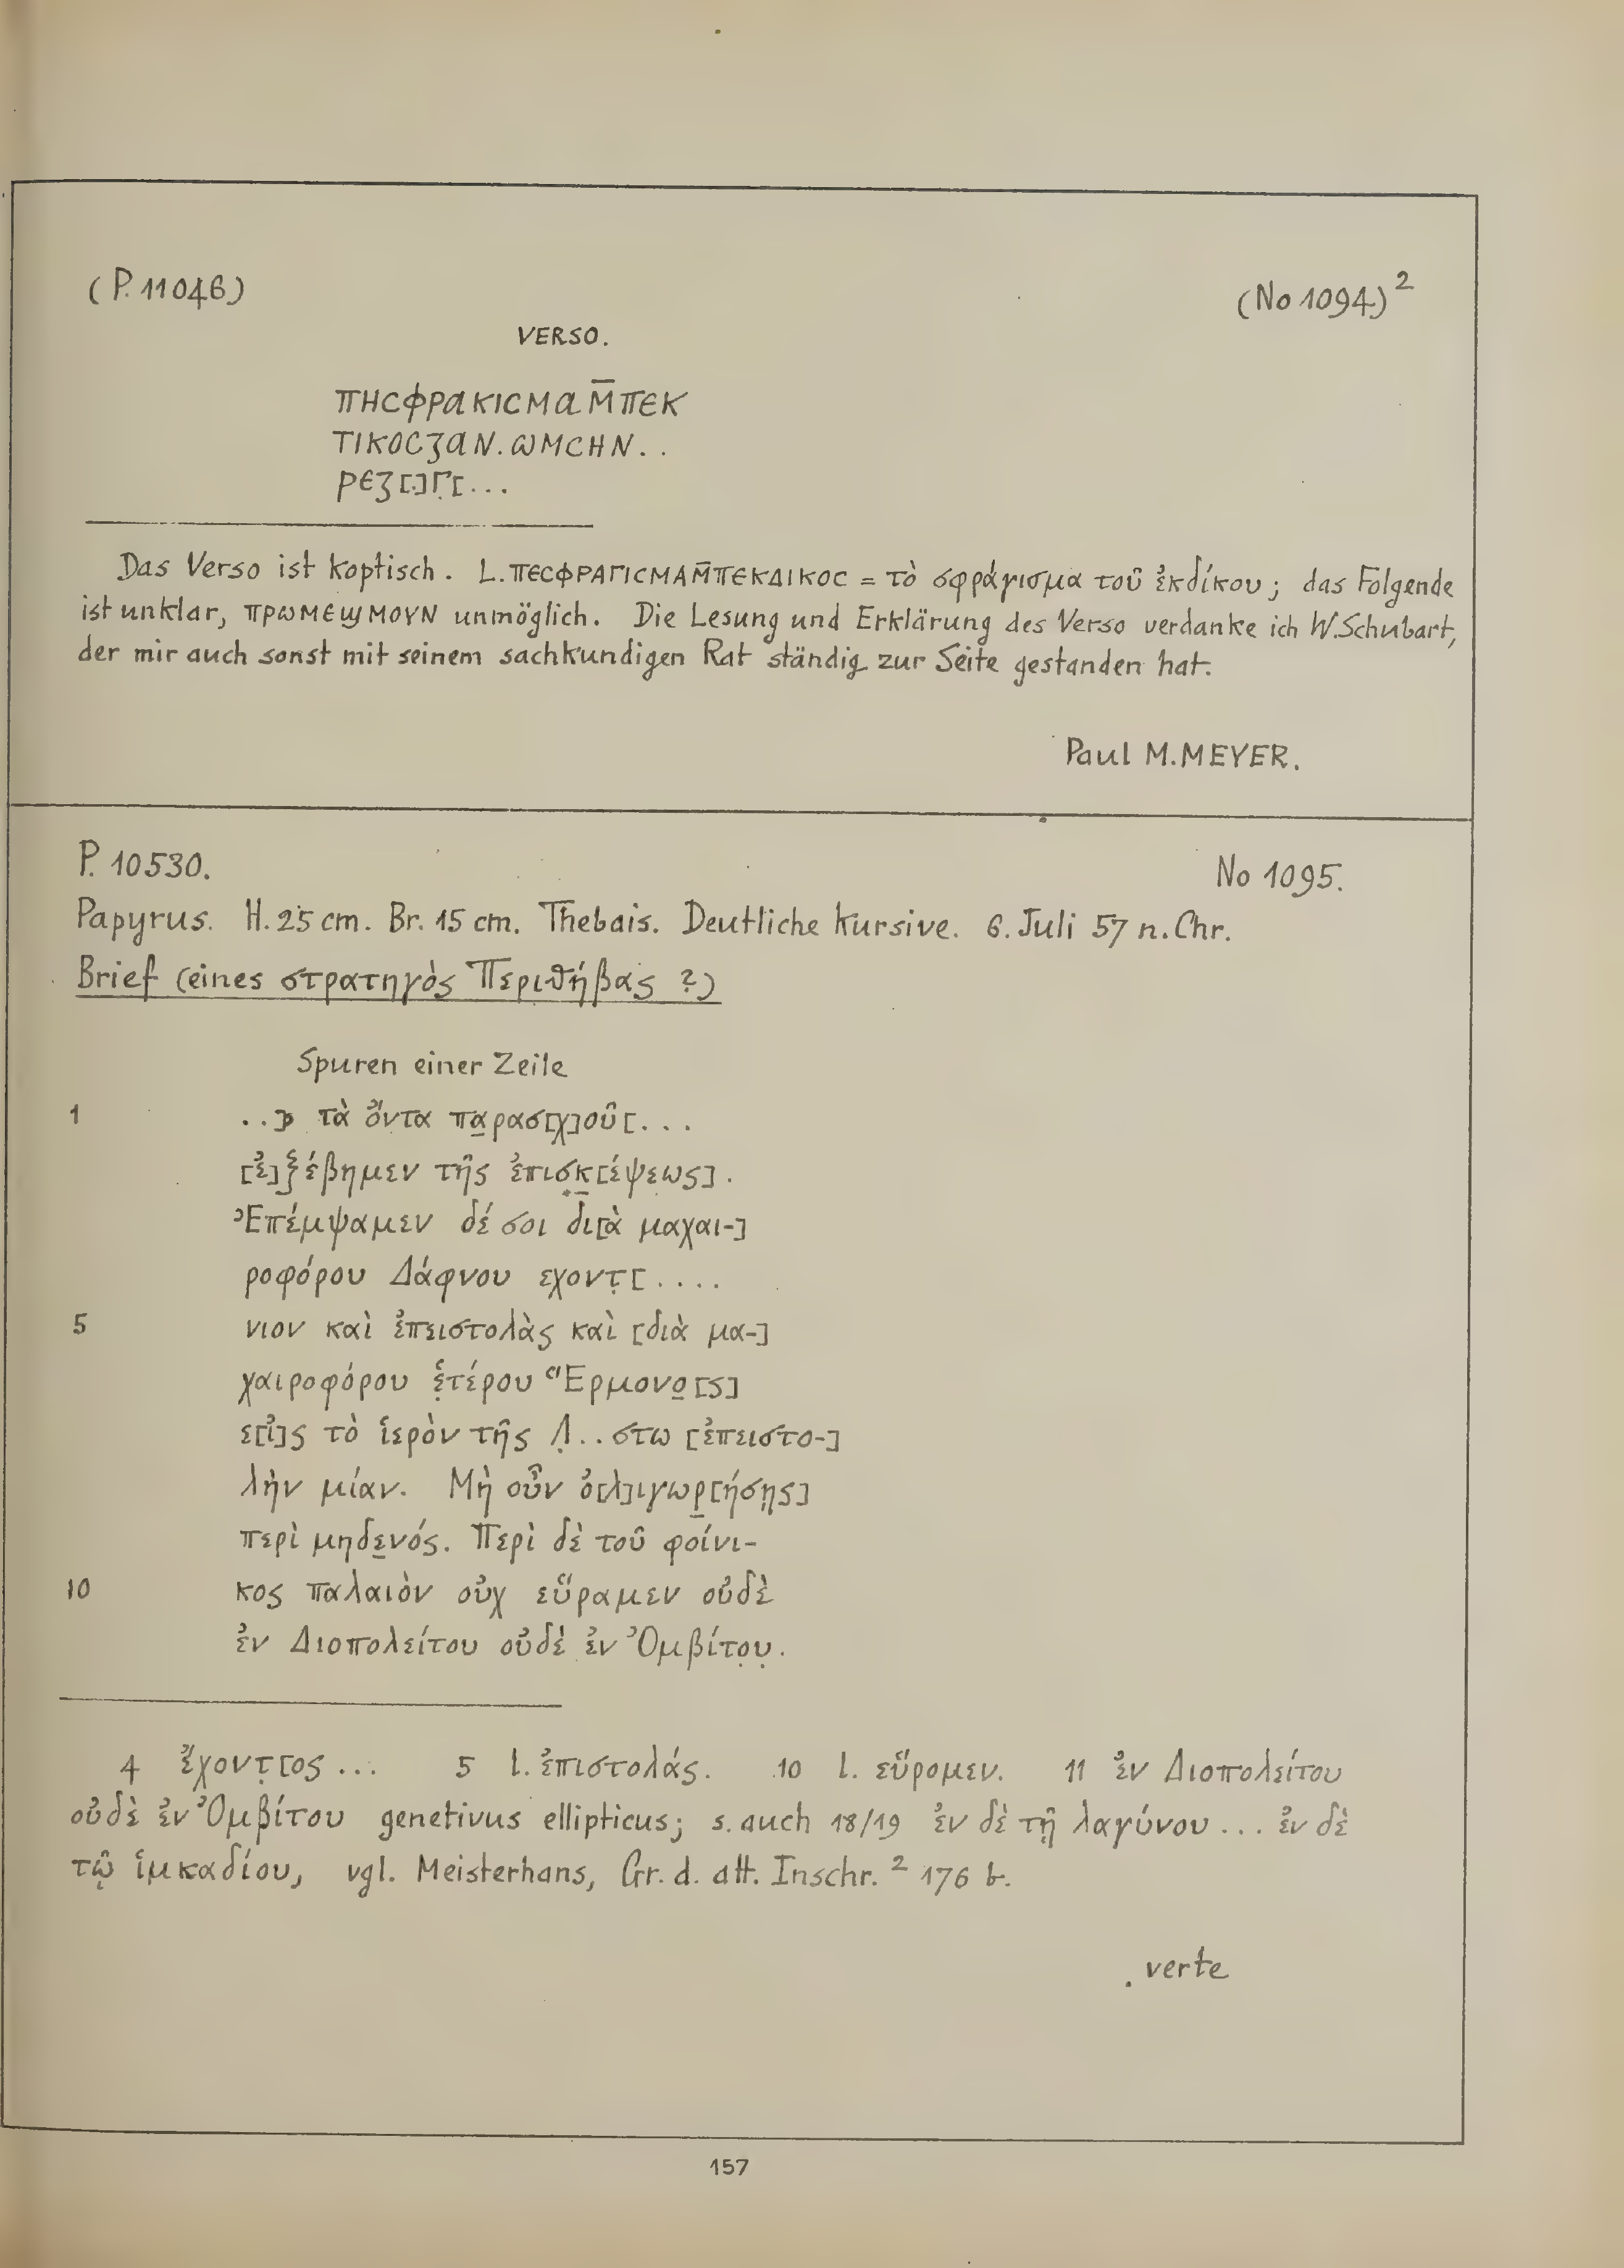 (P. 11046)
(No 1094)²
VERSO.
ⲡⲏⲥⲫⲣⲁⲕⲓⲥⲙⲁⲙ̄ⲡⲉⲕ
ⲧⲓⲕⲟⲥϩⲁⲛ.ⲱⲙⲥⲏⲛ..
ⲣⲉϩ[.]ⲅ̣[...
Das Verso ist koptisch. L. ⲡⲉⲥⲫⲣⲁⲅⲓⲥⲙⲁⲙ̄ⲡⲉⲕⲇⲓⲕⲟⲥ = τὸ σφράγισμα τοῦ ἐκδίκου; das Folgende
ist unklar, ⲡⲣⲱⲙⲉϣⲙⲟⲩⲛ unmöglich. Die Lesung und Erklärung des Verso verdanke ich W. Schubart,
der mir auch sonst mit seinem sachkundigen Rat ständig zur Seite gestanden hat.
Paul M. MEYER.
P. 10530.
No 1095.
Papyrus. H. 25 cm. Br. 15 cm. Thebais. Deutliche Kursive. 6. Juli 57 n. Chr.
Brief (eines στρατηγὸς Περιθήβας ?)
Spuren einer Zeile
1 τὰ ὄντα πα̣ρασ[χ]οῦ[...
[ἐ]ξ̣έβημεν τῆς ἐπισ̣κ̣[έψεως].
Ἐπέμψαμεν δέ σοι δι[ὰ μαχαι-]
ροφόρου Δάφνου εχοντ̣[....
5 νιον καὶ ἐπειστολὰς καὶ [διὰ μα-]
χαιροφόρου ἑ̣τέρου Ἕρμονο̣[ς]
ε[ἰ]ς τὸ ἱερὸν τῆς Λ̣..στω [ἐπειστο-]
λὴν μίαν. Μὴ οὖν ὀ[λ]ιγωρ̣[ήσῃς]
περὶ μηδε̣νός. Περὶ δὲ τοῦ φοίνι-
10 κος παλαιὸν οὐχ εὕραμεν οὐδὲ
ἐν Διοπολείτου οὐδὲ ἐν Ὀμβίτο̣υ̣.
4 ἔχοντ̣[ος ... 5 l. ἐπιστολάς. 10 l. εὕρομεν. 11 ἐν Διοπολείτου
οὐδὲ ἐν Ὀμβίτου genetivus ellipticus; s. auch 18/19 ἐν δὲ τῇ λαγύνου ... ἐν δὲ
τῷ ἱμκαδίου, vgl. Meisterhans, Gr. d. att. Inschr. ² 176 b.
verte
157